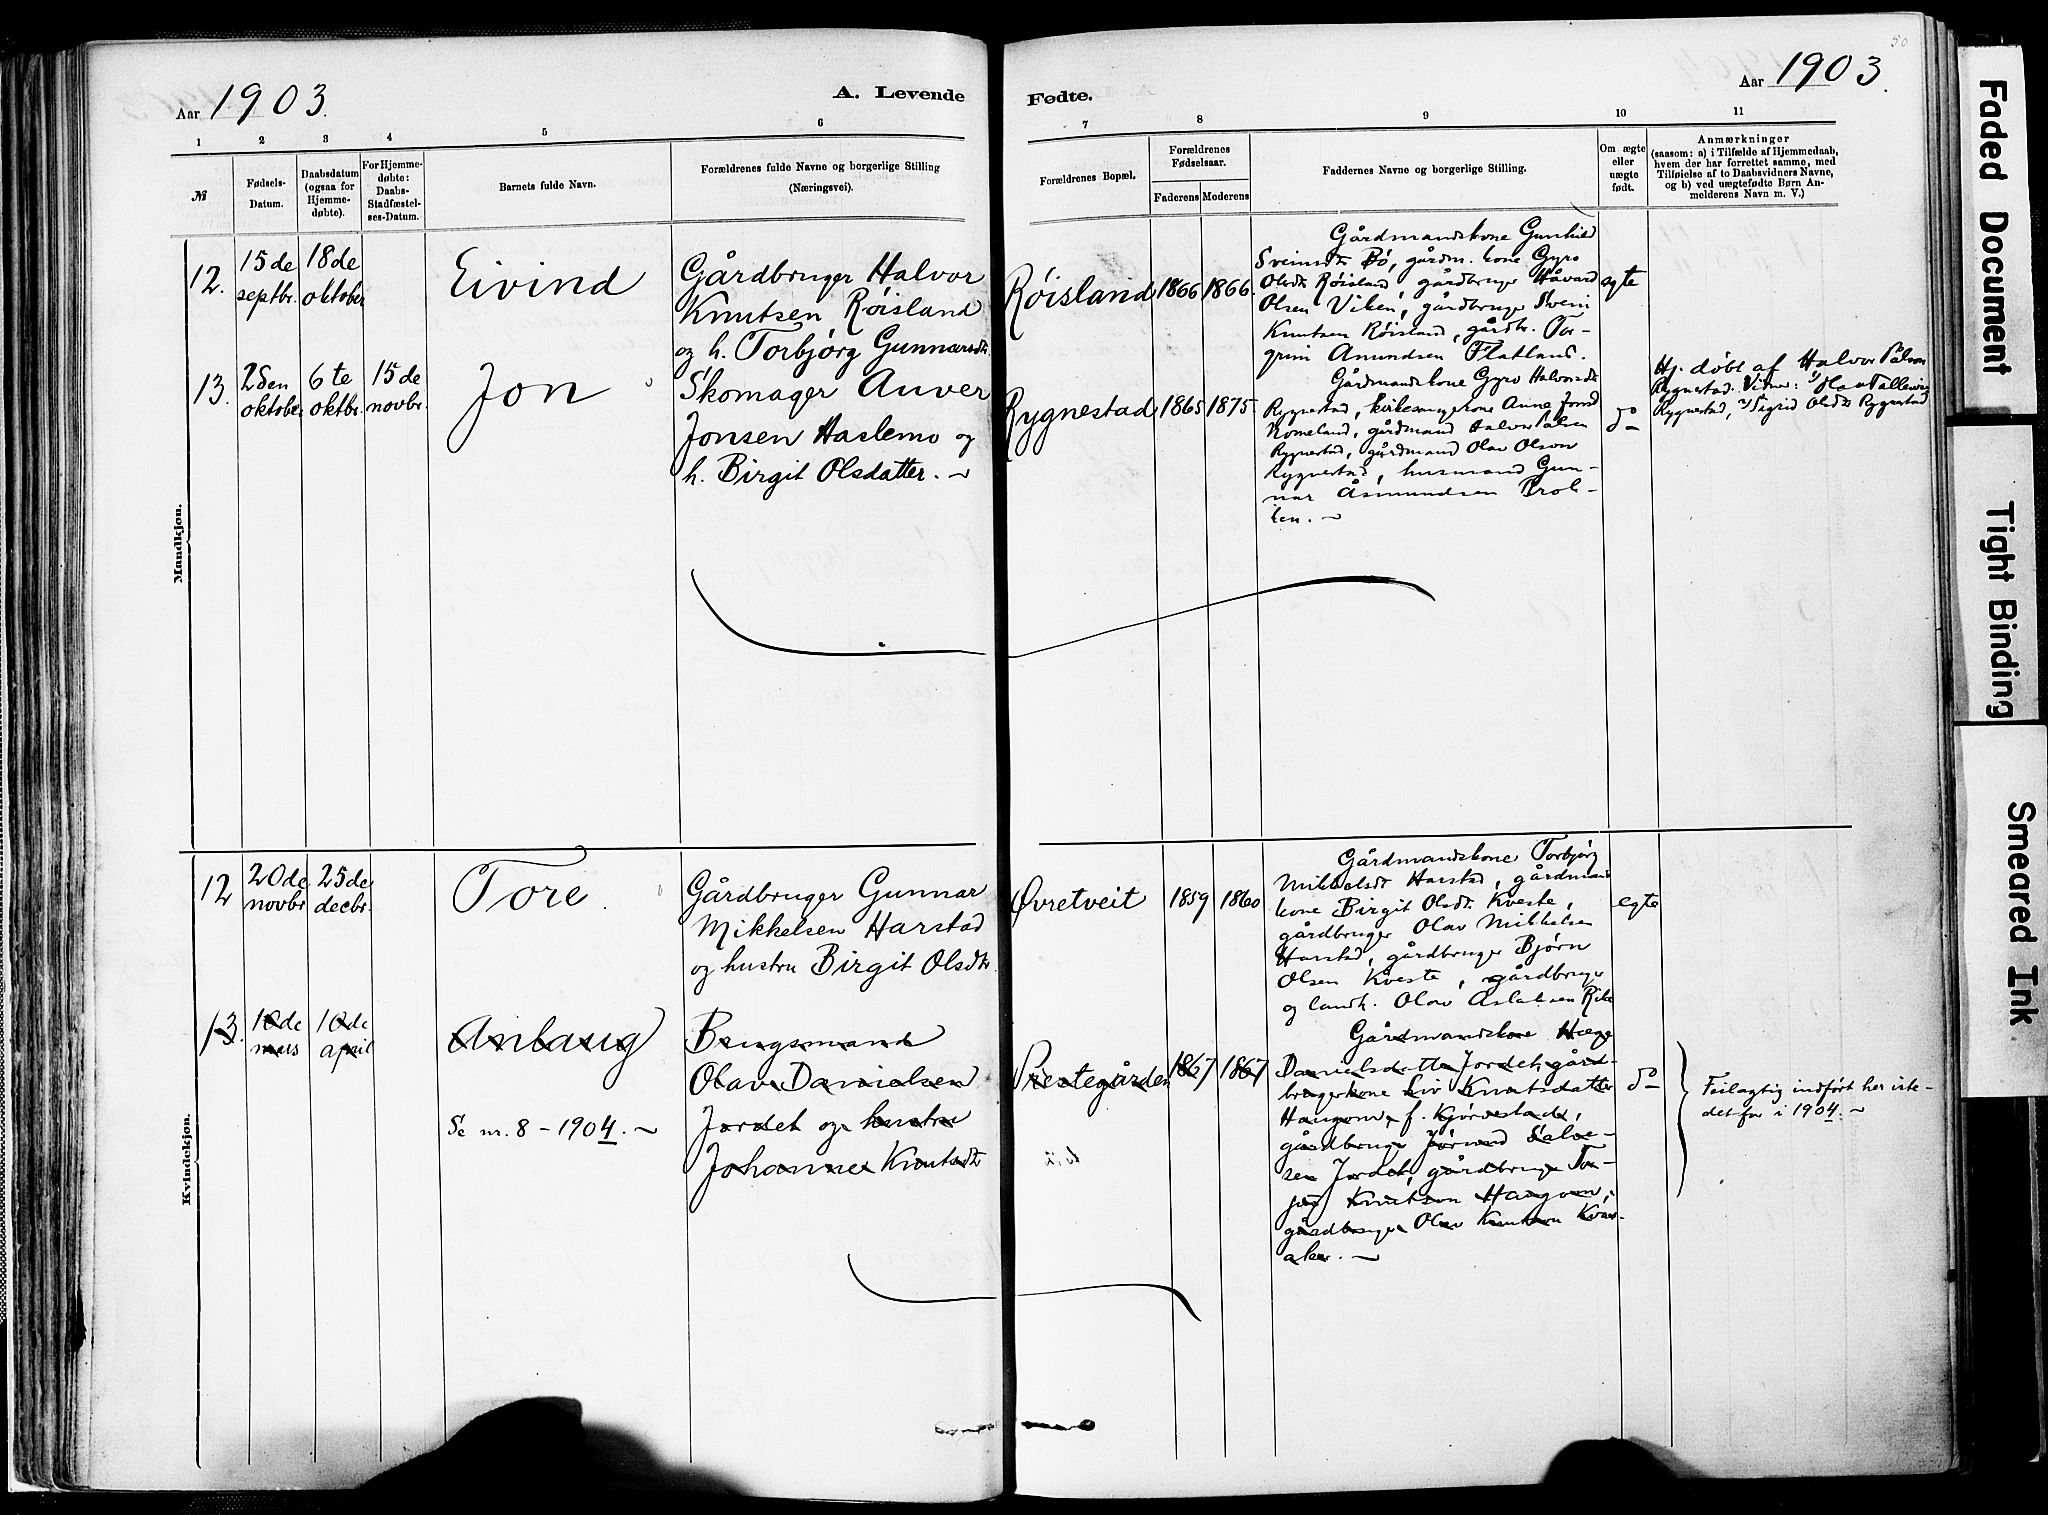 50
Aar 1903.
A. Levende
Fødte.
Aar 1903.
1 2 3 4 5 6 7 8 9 10 11
№
Fødsels-
Datum.
Daabsdatum
(ogsaa for
Hjemme-
døbte).
For Hjemme-
døbte:
Daabs-
Stadfæstel-
ses-Datum.
Barnets fulde Navn.
Forældrenes fulde Navne og borgerlige Stilling
(Næringsvei).
Forældrenes Bopæl.
Forældrenes
Fødselsaar.
Faderens
Moderens
Faddernes Navne og borgerlige Stilling.
Om ægte
eller
uægte
født.
Anmærkninger
(saasom: a) i Tilfælde af Hjemmedaab,
hvem der har forrettet samme, med
Tilføielse af to Daabsvidners Navne,
og b) ved uægtefødte Børn An-
melderens Navn m. V.)
Mandkjøn.
12.
15de
septbr.
18de
oktober
Eivind
Gårdbruger Halvor
Knutsen Røisland
og h. Torbjørg Gunnarsdtr.
Røisland
1866
1866.
Gårdmandskone Gunhild
Sveinsdtr Bø, gårdm. kone Gyro
Olsdtr Røisland, gårdbruger Håvard
Olsen Viken, gårdbruger Svein
Knutsen Røisland, gårdbr. Tor-
grim Amundsen Flatland.
egte
13.
2den
oktober
6te
oktbr.
15de
novbr.
Jon
Skomager Auver
Jonsen Haslemo og
h. Birgit Olsdatter. ~
Rygnestad
1865
1875
Gårdmandskone Gyro Halvorsdtr
Rygnestad, kirkesangerkone Anne Jonsd
Homeland, gårdmand Halvor Pålsen
Rygnestad, gårdmand Olav Olson
Rygnestad, husmand Gun-
nar Åsmundsen Brok-
ken. ~
do
Hj. døbt af Halvor Pålson
Rygnestad. Vitner: 1) Olav Tallevsen
Rygnestad, 2) Sigrid Olsdtr Rygnestad
Kvindekjøn.
12
20de
novbr
25de
decbr.
Tore
Gårdbruger Gunnar
Mikkelsen Harstad
og hustru Birgit Olsdtr.
Øvretveit
1859
1860
Gårdmandskone Torbjørg
Mikkelsdtr Harstad, gårdmand
kone Birgit Olsdtr. Kveste,
gårdbruger Olav Mikkelsen
Harstad, gårdbruger Bjørn
Olsen Kveste, gårdbruger
og landh. Olav Aslaksen Rike
egte
13.
10de
mars
10de
april
Anlaug
Se nr. 8 – 1904. ~
Brugsmand
Olav Danielsen
Jordet og hustru
Johanne Knutsdtr
Prestegården
1867
1867
Gårdmandskone Hæge
Danielsdatter Jordet, gård-
brugerkone Liv Knutsdatter
Haugom, f. Kjørvestad,
gårdbruger Jørund Salve-
sen Jordet, gårdbruger Tor-
jus Knutson Haugom,
gårdbruger Olav Knutson Kvas-
aker. ~
do
Feilagtig indført her iste-
det for i 1904. ~
Faded Document
Tight Binding
Smeared Ink